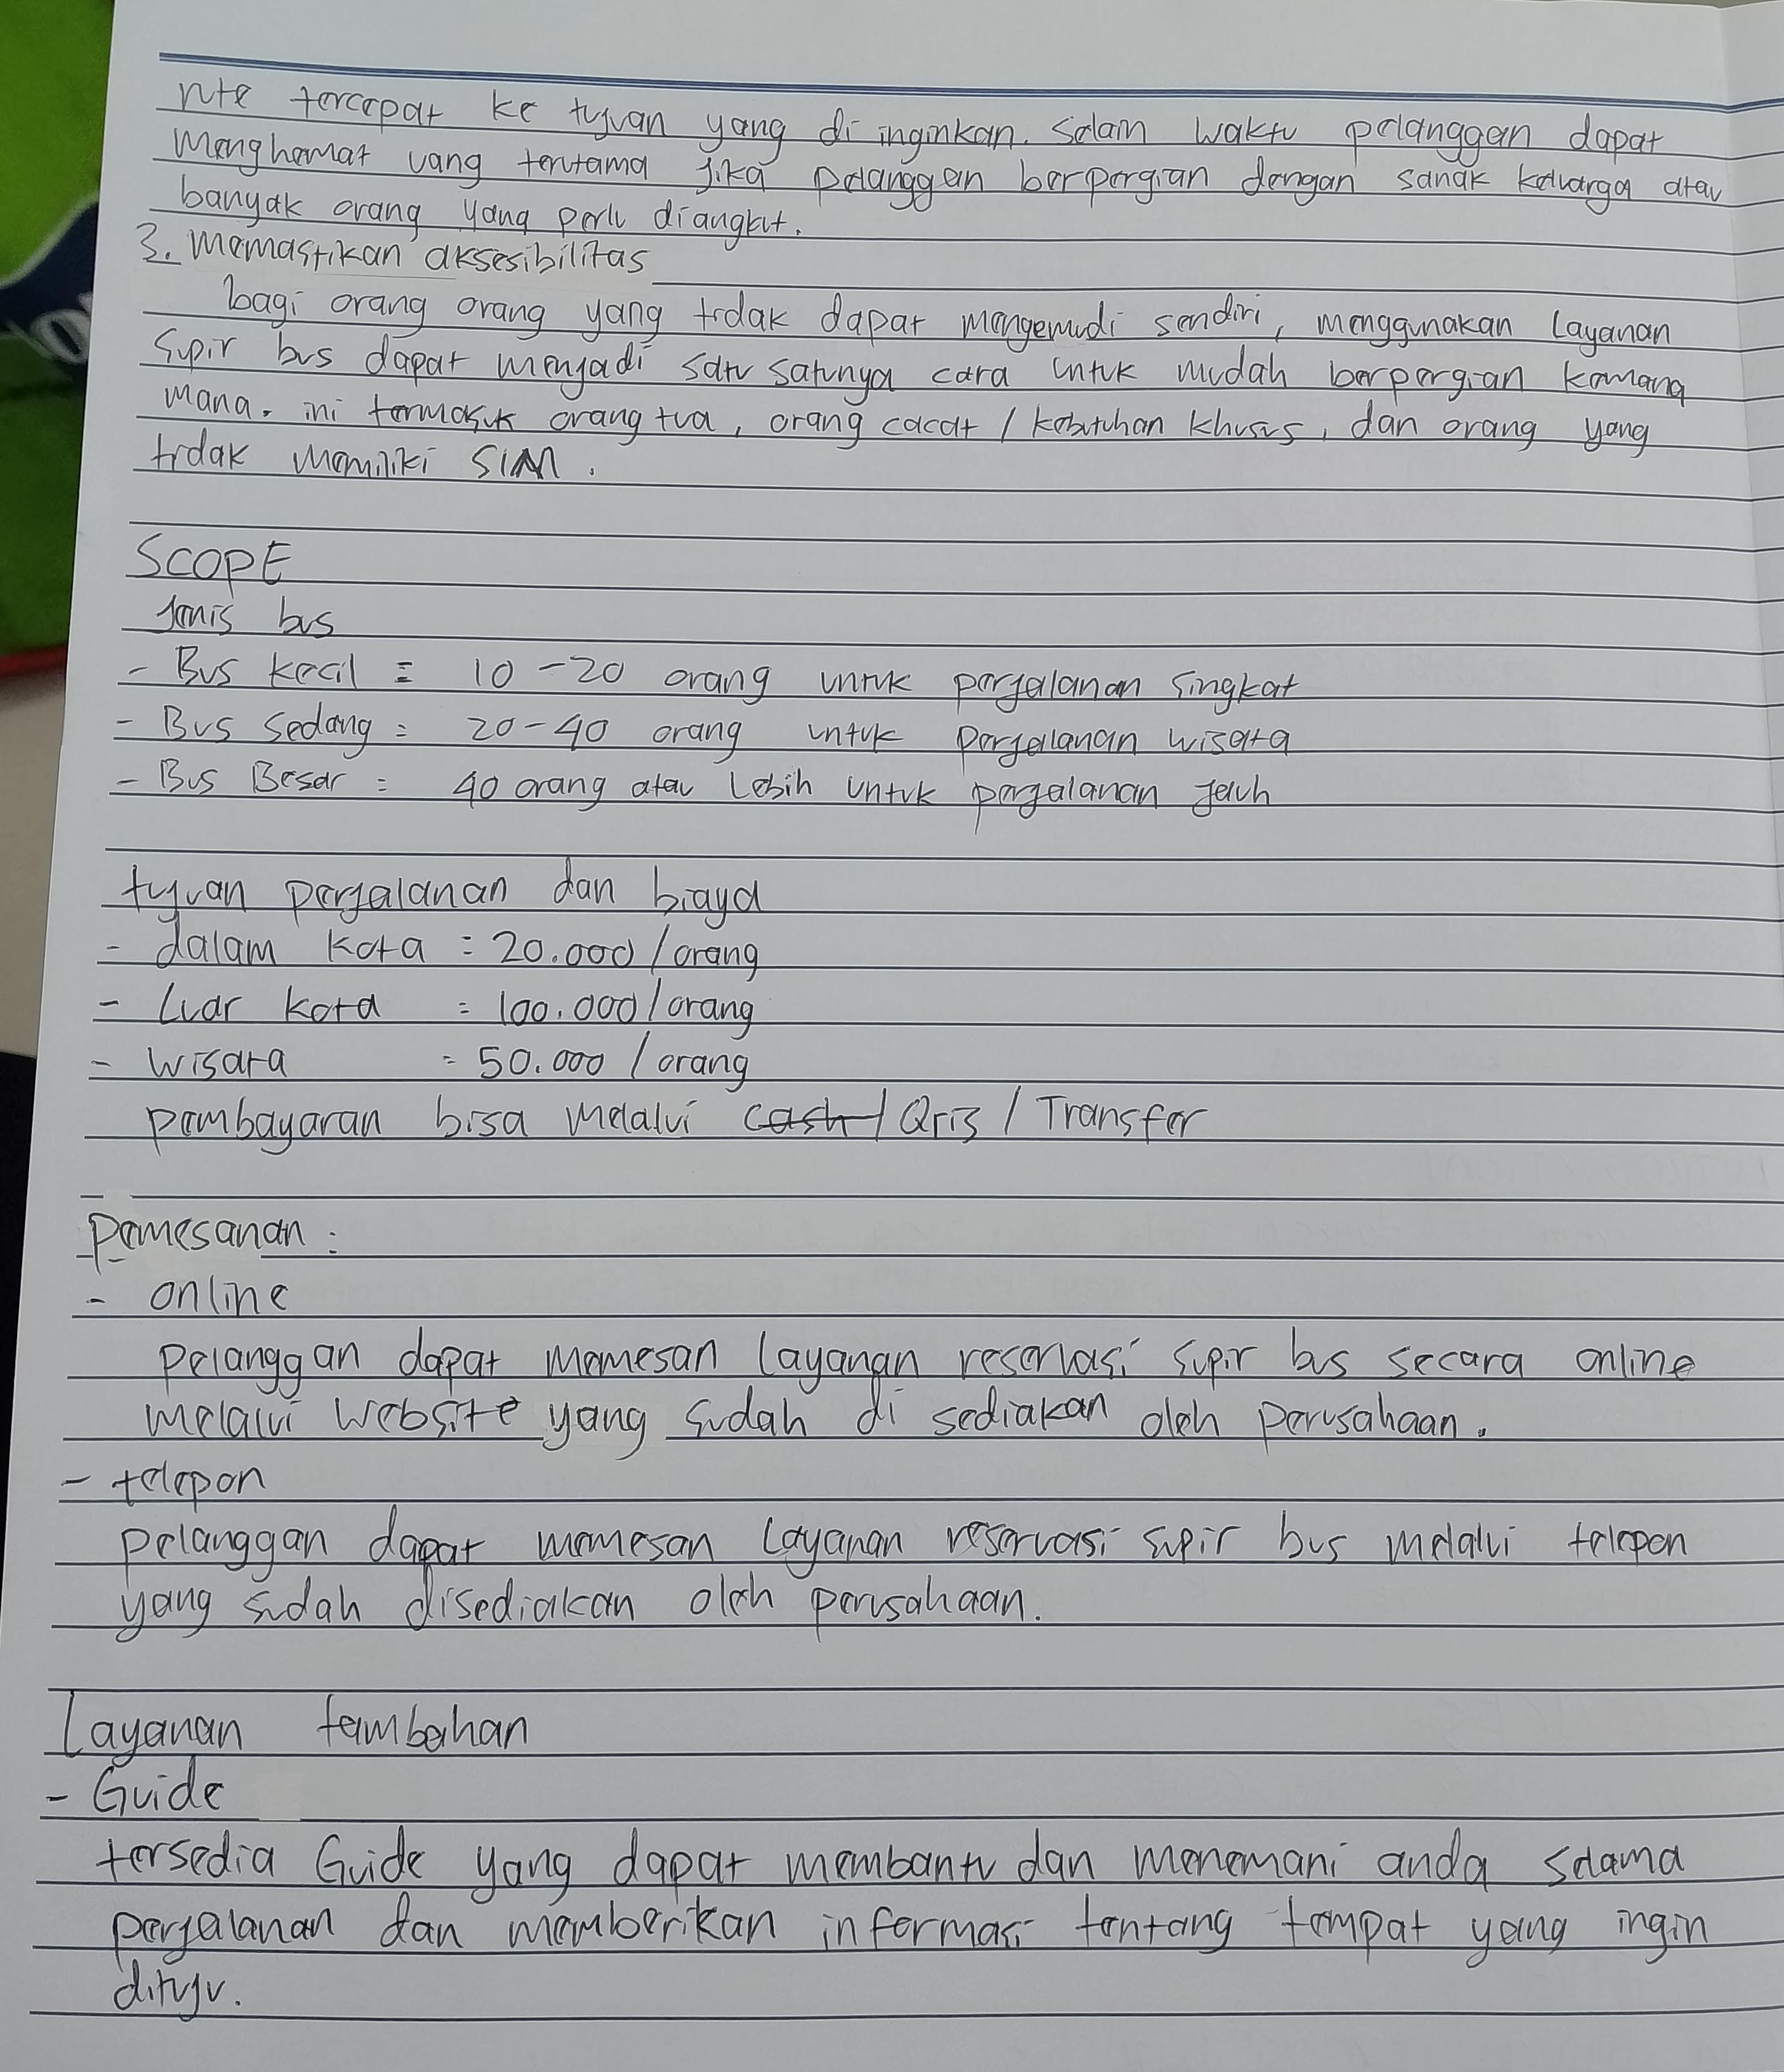 rute tercepat ke tujuan yang di inginkan. Selain waktu pelanggan dapat
menghemat uang terutama jika pelanggan berpergian dengan sanak keluarga atau
banyak orang yang perlu diangkut.
3. Memastikan aksesibilitas
bagi orang orang yang tidak dapat mengemudi sendiri, menggunakan layanan
supir bus dapat menjadi satu satunya cara untuk mudah berpergian kemana
mana. ini termasuk orang tua, orang cacat / kebutuhan khusus, dan orang yang
tidak memiliki SIM.
SCOPE
Jenis bus
- Bus kecil = 10-20 orang untuk perjalanan singkat
- Bus sedang = 20-40 orang untuk perjalanan wisata
- Bus Besar = 40 orang atau lebih untuk perjalanan jauh
tujuan perjalanan dan biaya
- dalam kota = 20.000/orang
- Luar kota = 100.000/orang
- wisata = 50.000/orang
pembayaran bisa melalui cash / Qris / Transfer
Pemesanan :
- online
pelanggan dapat memesan layanan reservasi supir bus secara online
melalui website yang sudah di sediakan oleh perusahaan.
- telepon
pelanggan dapat memesan layanan reservasi supir bus melalui telepon
yang sudah disediakan oleh perusahaan.
Layanan tambahan
- Guide
tersedia Guide yang dapat membantu dan menemani anda selama
perjalanan dan memberikan informasi tentang tempat yang ingin
dituju.